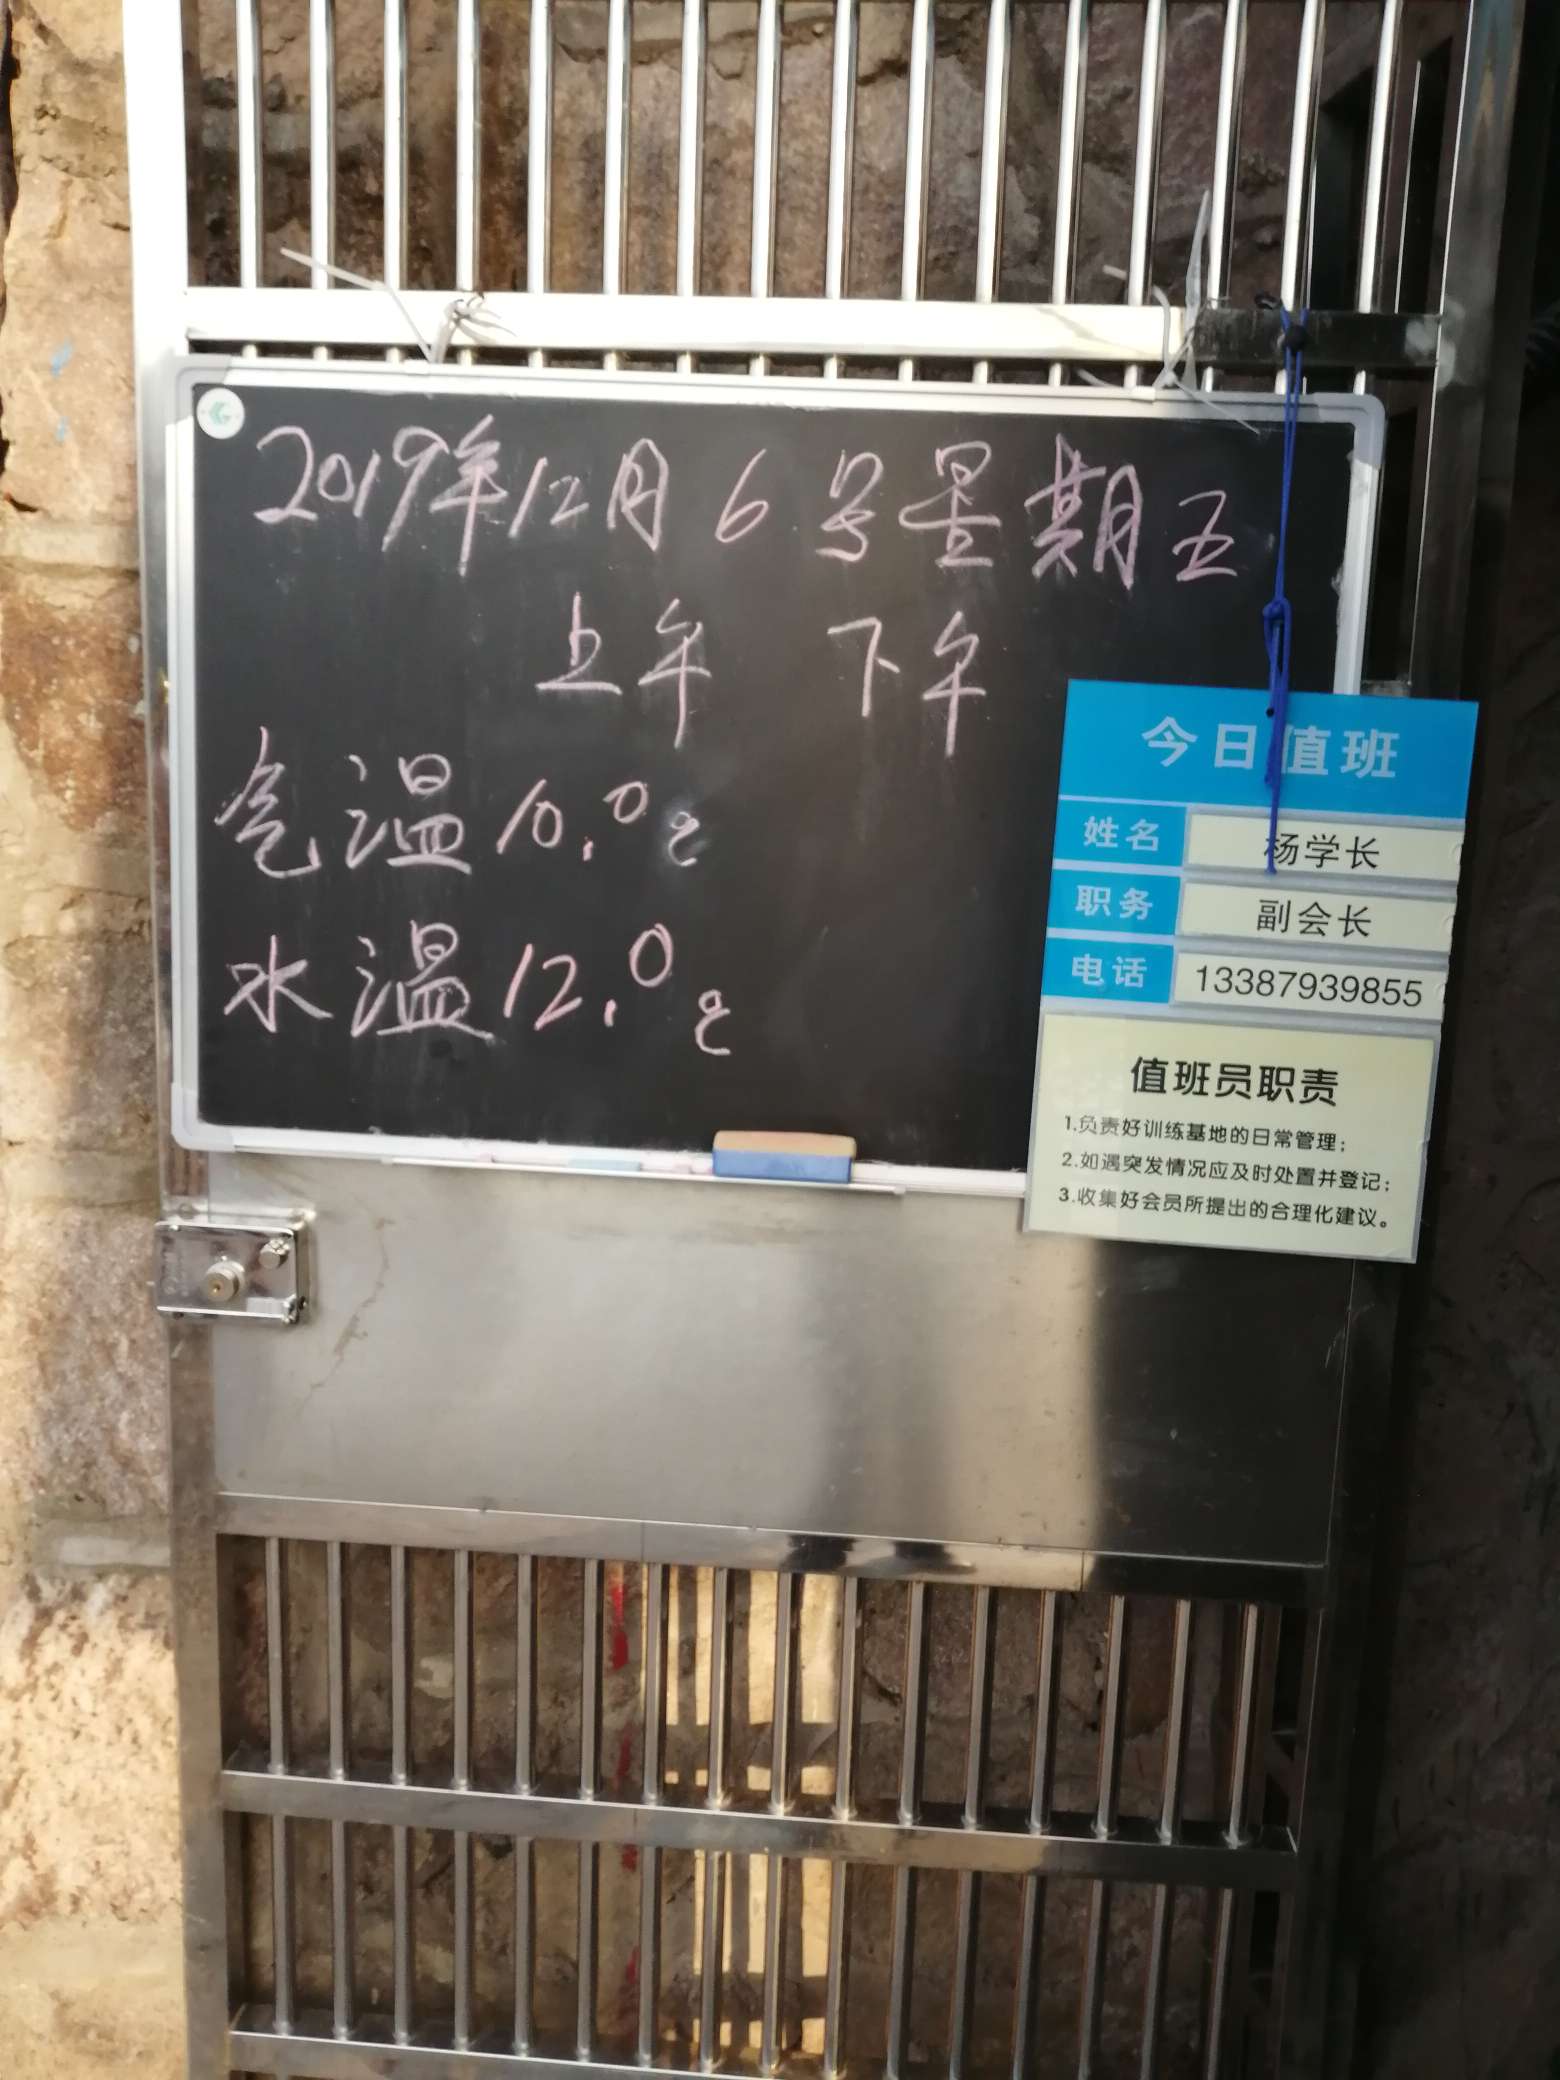 2019年12月6号星期五
上午 下午
气温10.0℃
水温12.0℃
今日值班
姓名 杨学长
职务 副会长
电话 13387939855
值班员职责
1.负责好训练基地的日常管理；
2.如遇突发情况应及时处置并登记；
3.收集好会员所提出的合理化建议。